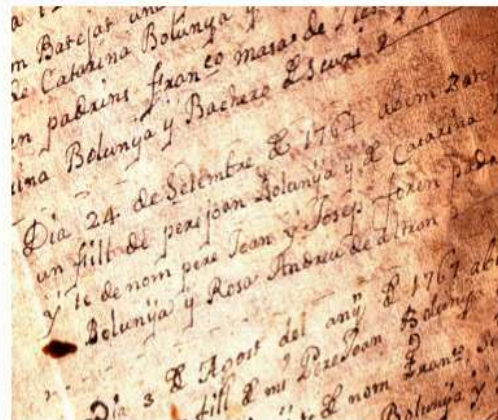 m Batejat un
de Catarina Bolunya y
en padrins fran.co masas de
rina Bolunya y Bachero
Dia 24 de Setembre de 1767 abem Batej
un fill de pere joan Bolunya y de Catarina
y te de nom pere Joan y Josep foren padr
Bolunya y Rosa Andreu de
Dia 3 de Agost del any de 1767 abe
fill de mi Pere Joan Bolunya
de nom Fran.co
Bolunya y